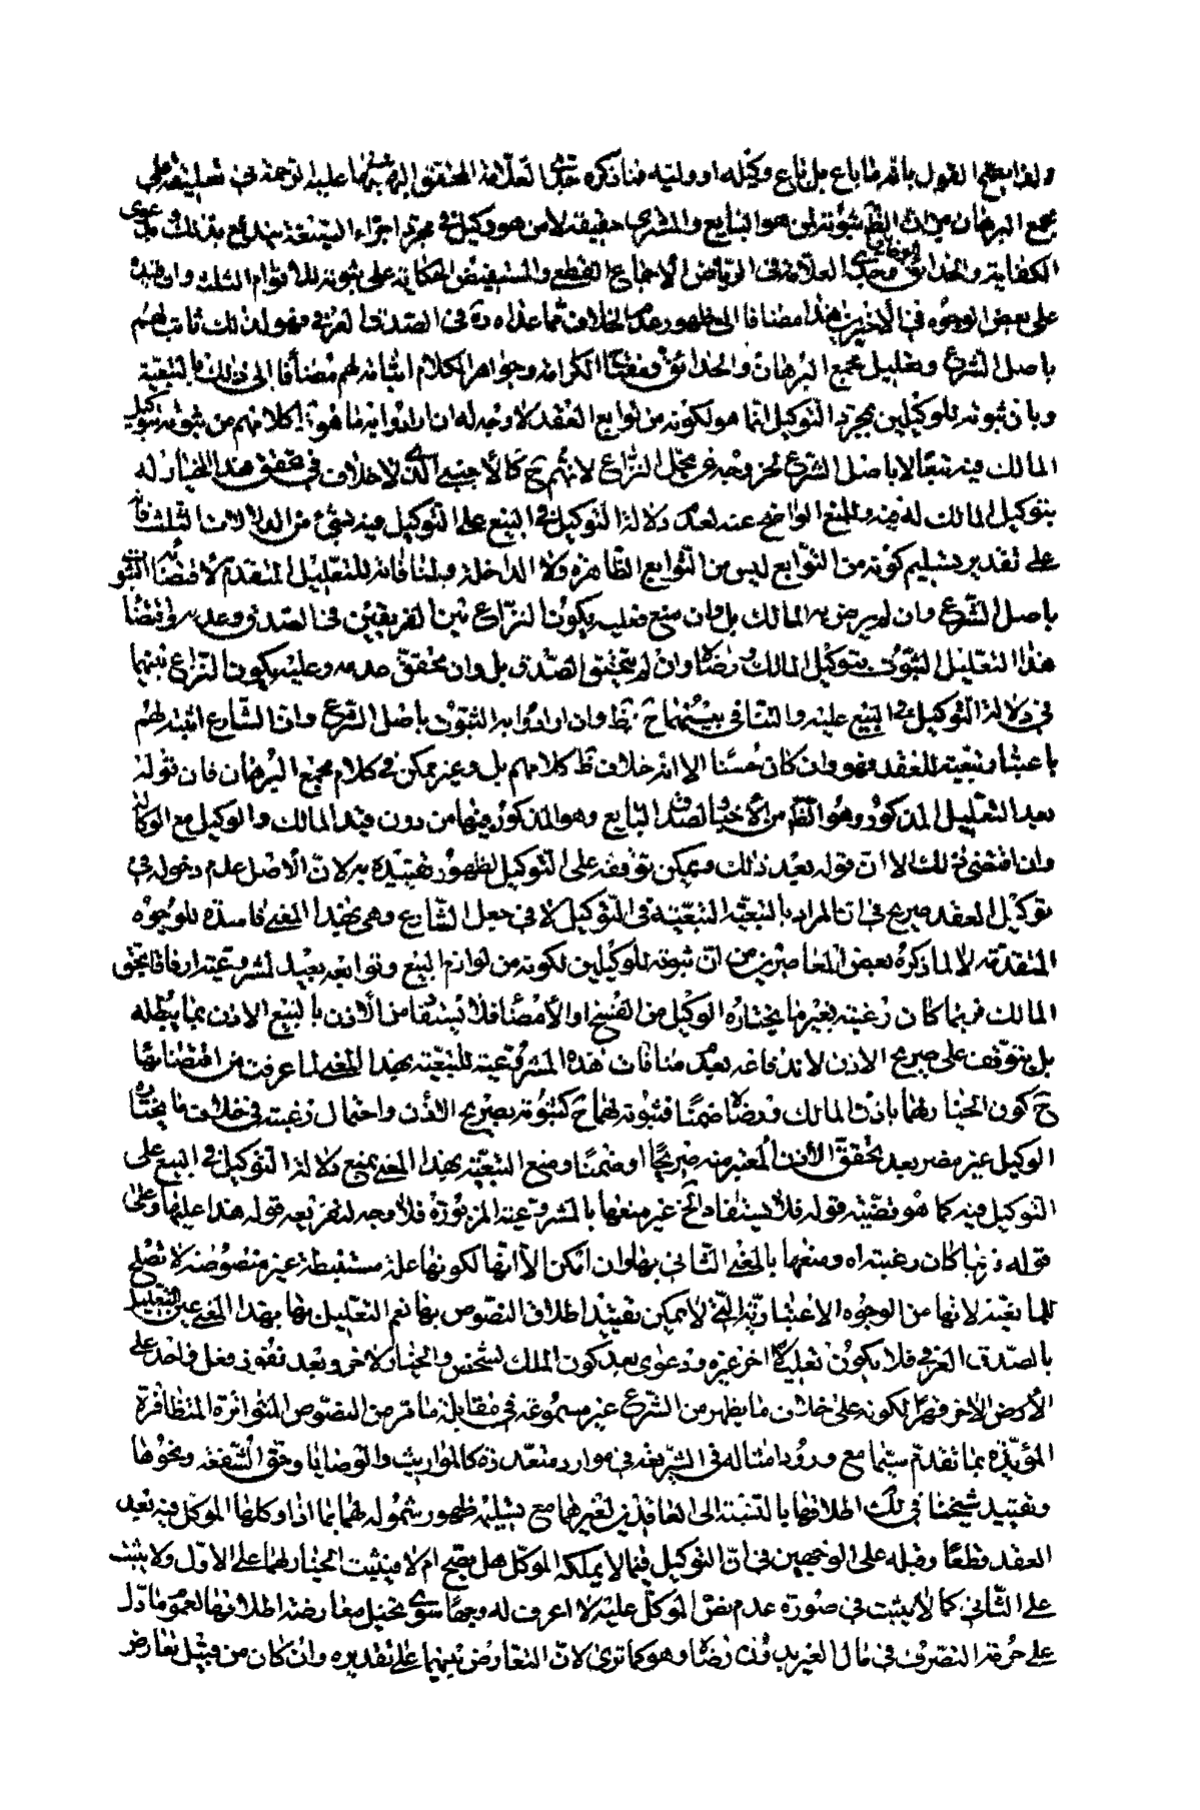 ولذا يصح القول بانه ما باع بل باع وكيله او وليه فما ذكره جدى العلامة المحقق البهبهانى عليه الرحمة فى تعليقه على
مجمع البرهان من ان الظ ثبوته لمن هو البايع والمشترى حقيقة لا من هو وكيل فى مجرد اجراء الصيغة
الكفاية والحدائق وجدى العلامة فى الرياض الاجماع القطع والمستفيض الحكاية على ثبوته
على بعض الوجوه فى الاخيرين هذا مضافا الى ظهور عدم الخلاف فما عداه فى الصدق العرفى وهو لذلك ثابت لهم
باصل الشرع وتعليل مجمع البرهان والحدائق ومفتاح الكرامة وجواهر الكلام اثباته لهم مضافا الى ذلك بالتبعية
وبان ثبوته للوكيلين بمجرد التوكيل انما هو لكونه من توابع العقد لا وجه له ان ارادوا به ما هو كلامهم من ثبوته بتوكيل
المالك فيه تبعا لا باصل الشرع لخروجه عن محل النزاع لانهم ح كالاجنبى الذى لا خلاف فى تحقق هذا الخيار له
بتوكيل المالك له فيه والمنع الواضح عنه لعدم دلالة التوكيل فى البيع على التوكيل فيه بشئ من الدلالات الثلث
على تقدير تسليم كونه من التوابع ليس من التوابع الظاهرة ولا الداخلة ومنافاته للتعليل المتقدم لاقتضائه الثبوت
باصل الشرع وان لم يرض به المالك بل وان منع فعليه يكون النزاع بين الفريقين فى الصدق وعدمه واقتضاء
هذا التعليل الثبوت بتوكيل المالك ورضاه وان لم يتحقق الصدق بل وان تحقق عدمه وعليه يكون النزاع بينهما
فى دلالة التوكيل فى البيع عليه والتنافى بينهما ح ظ وان ارادوا به الثبوت باصل الشرع وان الشارع اثبته لهم
باعتبار تبعيته للعقد فهو وان كان حسنا الا انه خلاف ظ كلامهم بل وغير ممكن فى كلام مجمع البرهان فان قوله
بعد التعليل المذكور وهو الظ من الاخبار لصدق البايع وهو المذكور فيها من دون قيد المالك والوكيل مع الوكالة
وان اقتضى ذلك الا ان قوله بعد ذلك ويمكن توقفه على التوكيل لظهور تقييده به لان الاصل عدم دخوله فى
توكيل العقد صريح فى ان المراد بالتبعية التبعية فى التوكيل لا فى جعل الشارع وهى بهذا المعنى فاسدة للوجوه
المتقدمة لا لما ذكره بعض المعاصرين من ان ثبوته للوكيلين لكونه من لوازم البيع وتوابعه بعيد لمشروعيته ارفاقا بحق
المالك فربما كان رغبته بغير ما يختاره الوكيل من الفسخ او الامضاء فلا يستفاد من الاذن بالبيع الاذن بما يبطله
بل يتوقف على صريح الاذن لاندفاعه بعدم منافات هذه المشروعية للتبعية بهذا المعنى لما عرفت من اقتضائها
ح كون الخيار لهما باذن المالك ورضاه ضمنا فثبوته لهما ح كثبوته بصريح الاذن واحتمال رغبته فى خلاف ما يختاره
الوكيل غير مضر بعد تحقق الاذن المعتبر منه صريحا او ضمنا ومنع التبعية بهذا المعنى بمنع دلالة التوكيل فى البيع على
التوكيل فيه كما هو قضية قوله فلا يستفاد الخ غير منعها بالمشروعية المزبورة فلا وجه لتفريعه قوله هذا عليها وعلى
قوله فربما كان رغبته اه ومنعها بالمعنى الثانى بها وان امكن الا انها لكونها علة مستنبطة غير منصوصة لا تصلح
لما يفيد لانها من الوجوه الاعتبارية التى لا يمكن تقييد اطلاق النصوص بها نعم التعليل بها بهذا المعنى عين التعليل
بالصدق العرفى فلا يكون تعليلا اخر غيره ودعوى بعد كون الملك لشخص والخيار لاخر وبعد نفوذ فعل واحد على
الاخر فهرا لكونه على خلاف ما يظهر من الشرع غير مسموعة فى مقابلة ما مر من النصوص المتواترة المتظافرة
المؤيدة بما تقدم سيما مع ورود امثاله فى الشريعة فى موارد متعددة كالمواريث والوصايا وحق الشفعة ونحوها
وتقييد شيخنا فى لك اطلاقها بالنسبة الى العاقدين لغيرهما مع تسليمه ظهور شموله لهما بما اذا وكلهما الموكل فيه بعد
العقد قطعا وقبله على الوجهين فى ان التوكيل فيما لا يملكه الموكل هل يصح ام لا فيثبت الخيار لهما على الاول ولا يثبت
على الثانى كما لا يثبت فى صورة عدم نص الموكل عليه لا اعرف له وجها سوى تخيل معارضة اطلاقها لعموم ما دل
على حرمة التصرف فى مال الغير بدون رضاه وهو كما ترى لان التعارض بينهما على تقديره وان كان من قبيل تعارض